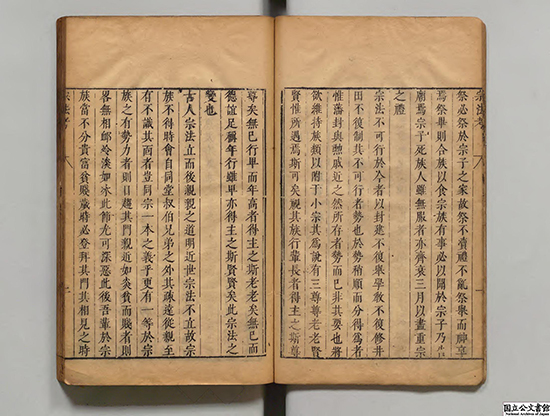 祭必祭於宗子之家故祭不瀆禮不亂祭舉而神享
焉祭畢則合族以食宗族有事必以關於宗子乃告
廟焉宗子死族人雖無服者亦齊衰三月以晝重宗
之禮
宗法不可行於今者以封建不復舉學敎不復修井
田不復制其不可行者勢也於勢稍順而分得為者
惟藩封與勳戚近之然所存者勢而已非其要也將
欲維持族類以附于小宗其為說有三尊尊老老賢
賢惟所遇焉斯可矣視其族行輩長者得主之斯尊
尊矣無已而行卑而年高者得主之斯老老矣無已而
德誼足稱年行雖卑亦得主之斯賢賢矣此宗法之
變也
古人宗法立而後親親之道明近世宗法不立故宗
族不得時會自同堂叔伯兄弟之外其疎遠從親至
有不識其面者豈同宗一本之義乎更有一等於宗
族之有勢力者則日趨其門親近如炙貧而賤者則
畧無相邺冷淡如冰此飾尤可深惡此後吾輩於宗
族當不分貴富貧賤歲時必登拜其門其相見之時
宗法考
宗法考
国立公文書館
National Archives of Japan